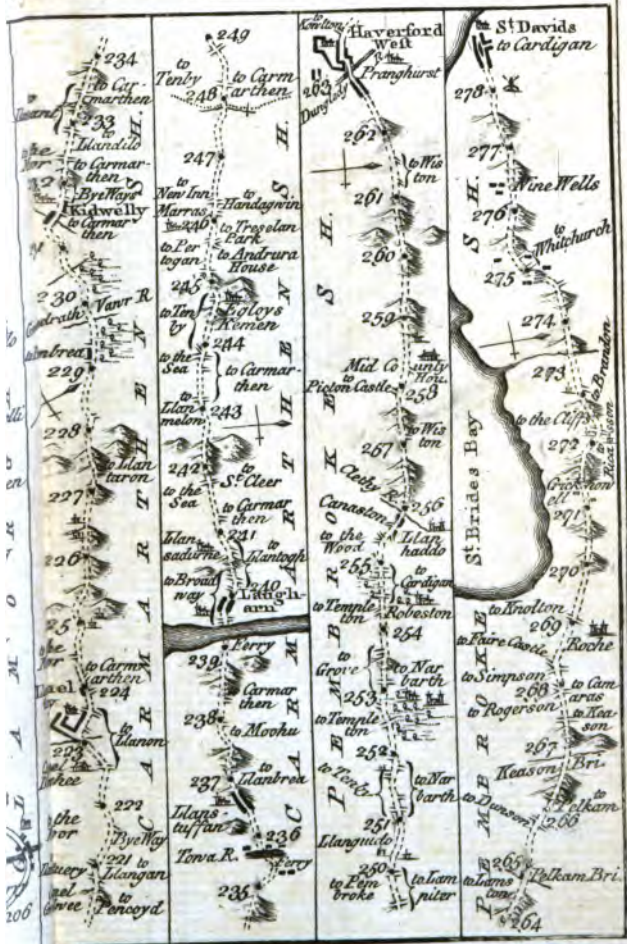 234
to Car-
marthen
233
to
Llandilo
to Carmar-
then
Bye Ways
Kidwelly
to Carmar
then
230
Vawr R.
229
228
to Llan
taron
227
226
to Carm
arthen
224
to
Llanon
223
222
Bye Way
221
to
Llangan
to
Pencoyd
206
CARMARTHEN SH.
249
to
Tenby
to Carm
arthen
248
247
to
New Inn
to
Handagwin
Marras
246
to Treselan
Park
to Per
togan
to Andrura
House
245
to Ten
by
Egloys
Kemen
244
to the
Sea
to Carmar-
then
to
Llan
melon
243
242
to
St. Cleer
to the
Sea
to
Carmar
then
241
Llan
sadurne
to
Llantogh
to Broad
way
240
Laugh-
arn
Ferry
239
to
Carmar
then
238
to Moohu
237
to
Llanbrea
Llans
tuffan
236
Towa R.
Ferry
235
CARMARTHEN SH.
to
Knolton
Haverford
West
Pranghurst
263
Dunglady
262
to Wis
ton
261
260
259
Mid Co
unty
Hou.
to
Picton Castle
258
257
to Wis
ton
Clethy R.
256
Canaston
Llan
haddo
to the
Wood
255
to
Cardigan
to Temple
ton
Robeston
254
to
Grove
253
to Nar
barth
to Temple
ton
252
to Tenby
to Nar
barth
251
Llanguido
250
to Pem
broke
to Lam
piter
PEMBROKE SH.
St. Davids
to Cardigan
278
277
Nine Wells
276
to
Whitchurch
275
274
273
to Brandon
to the Cliffs
272
to
Keaweson
Grickhow
ell
271
St. Brides Bay
270
to Knolton
269
Roche
to Faire Castle
to Simpson
268
to Cam
aras
to Rogerson
to Kea
son
267
Keason Bri.
to Dunson
to
Pelkam
266
265
to Lams
ton
Pelkam Bri.
264
PEMBROKE SH.